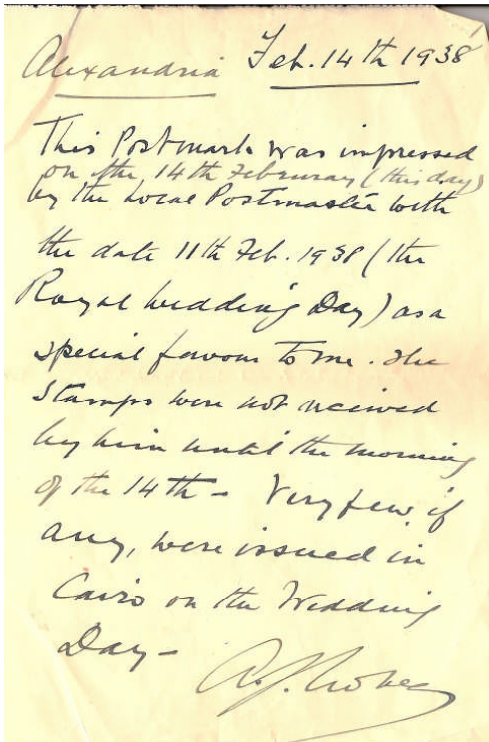 Alexandria Feb. 14th 1938
This Postmark was impressed
on the 14th Februray (this day)
by the Local Postmaster with
the date 11th Feb. 1938 (the
Royal Wedding Day) as a
special favour to me. The
Stamps were not received
by him until the morning
of the 14th - Very few, if
any, were issued in
Cairo on the Wedding
Day -